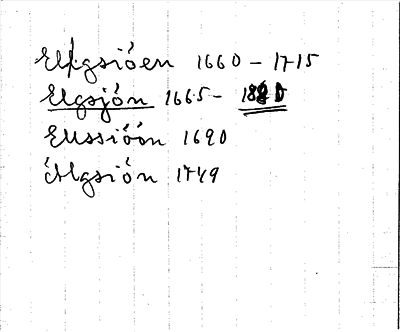 Elfgsióen 1660 - 1715
Elgsjón 1665 -
Elissióón 1690
Álgsión 1749